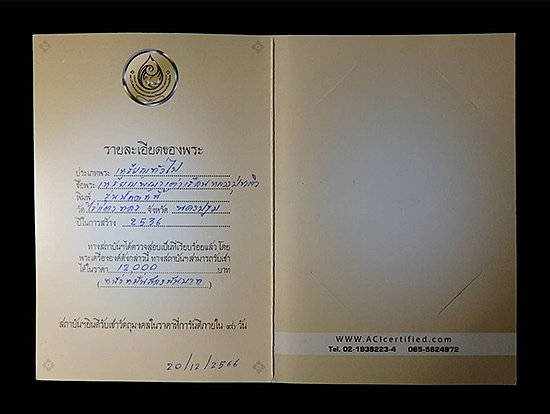 รายละเอียดของพระ
ประเภทพระ เหรียญทั่วไป
ชื่อพระ เหรียญพญาเต่าเรือน หลวงปู่หลิว
พิมพ์
วัด ไร่แตงทอง จังหวัด นครปฐม
ปีในการสร้าง 2536
ทางสถาบันฯได้ตรวจสอบเป็นที่เรียบร้อยแล้ว โดย
พระเครื่ององค์ดังกล่าวนี้ ทางสถาบันฯสามารถรับเช่า
ได้ในราคา 12000 บาท
( หนึ่งหมื่นสองพันบาท )
สถาบันฯยินดีรับเช่าวัตถุมงคลในราคาที่การันตีภายใน ๓๖ วัน
20/12/2566
WWW.ACIcertified.com
Tel. 02-1938223-4 065-5824972